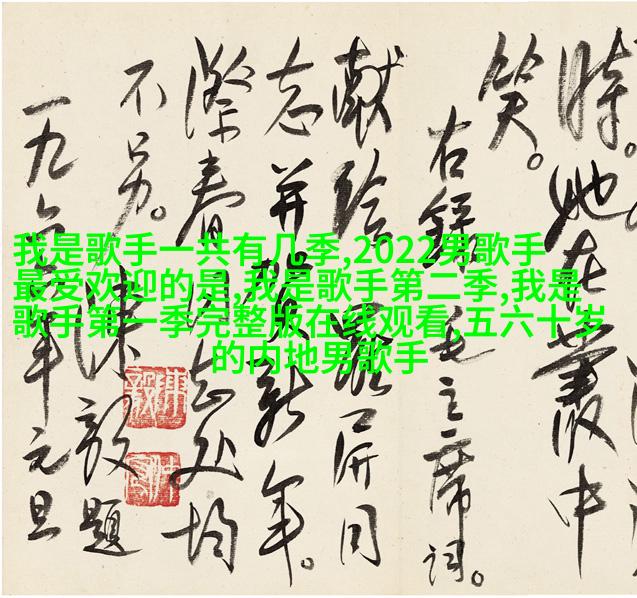 時。她在叢中
笑。
右錄毛主席詞。
獻給屏同
志并賀新年。
際春同志处均
不另。
陳毅題
一九六年元旦
陳毅
我是歌手一共有几季,2022男歌手
最受欢迎的是,我是歌手第二季,我是
歌手第一季完整版在线观看,五六十岁
的内地男歌手